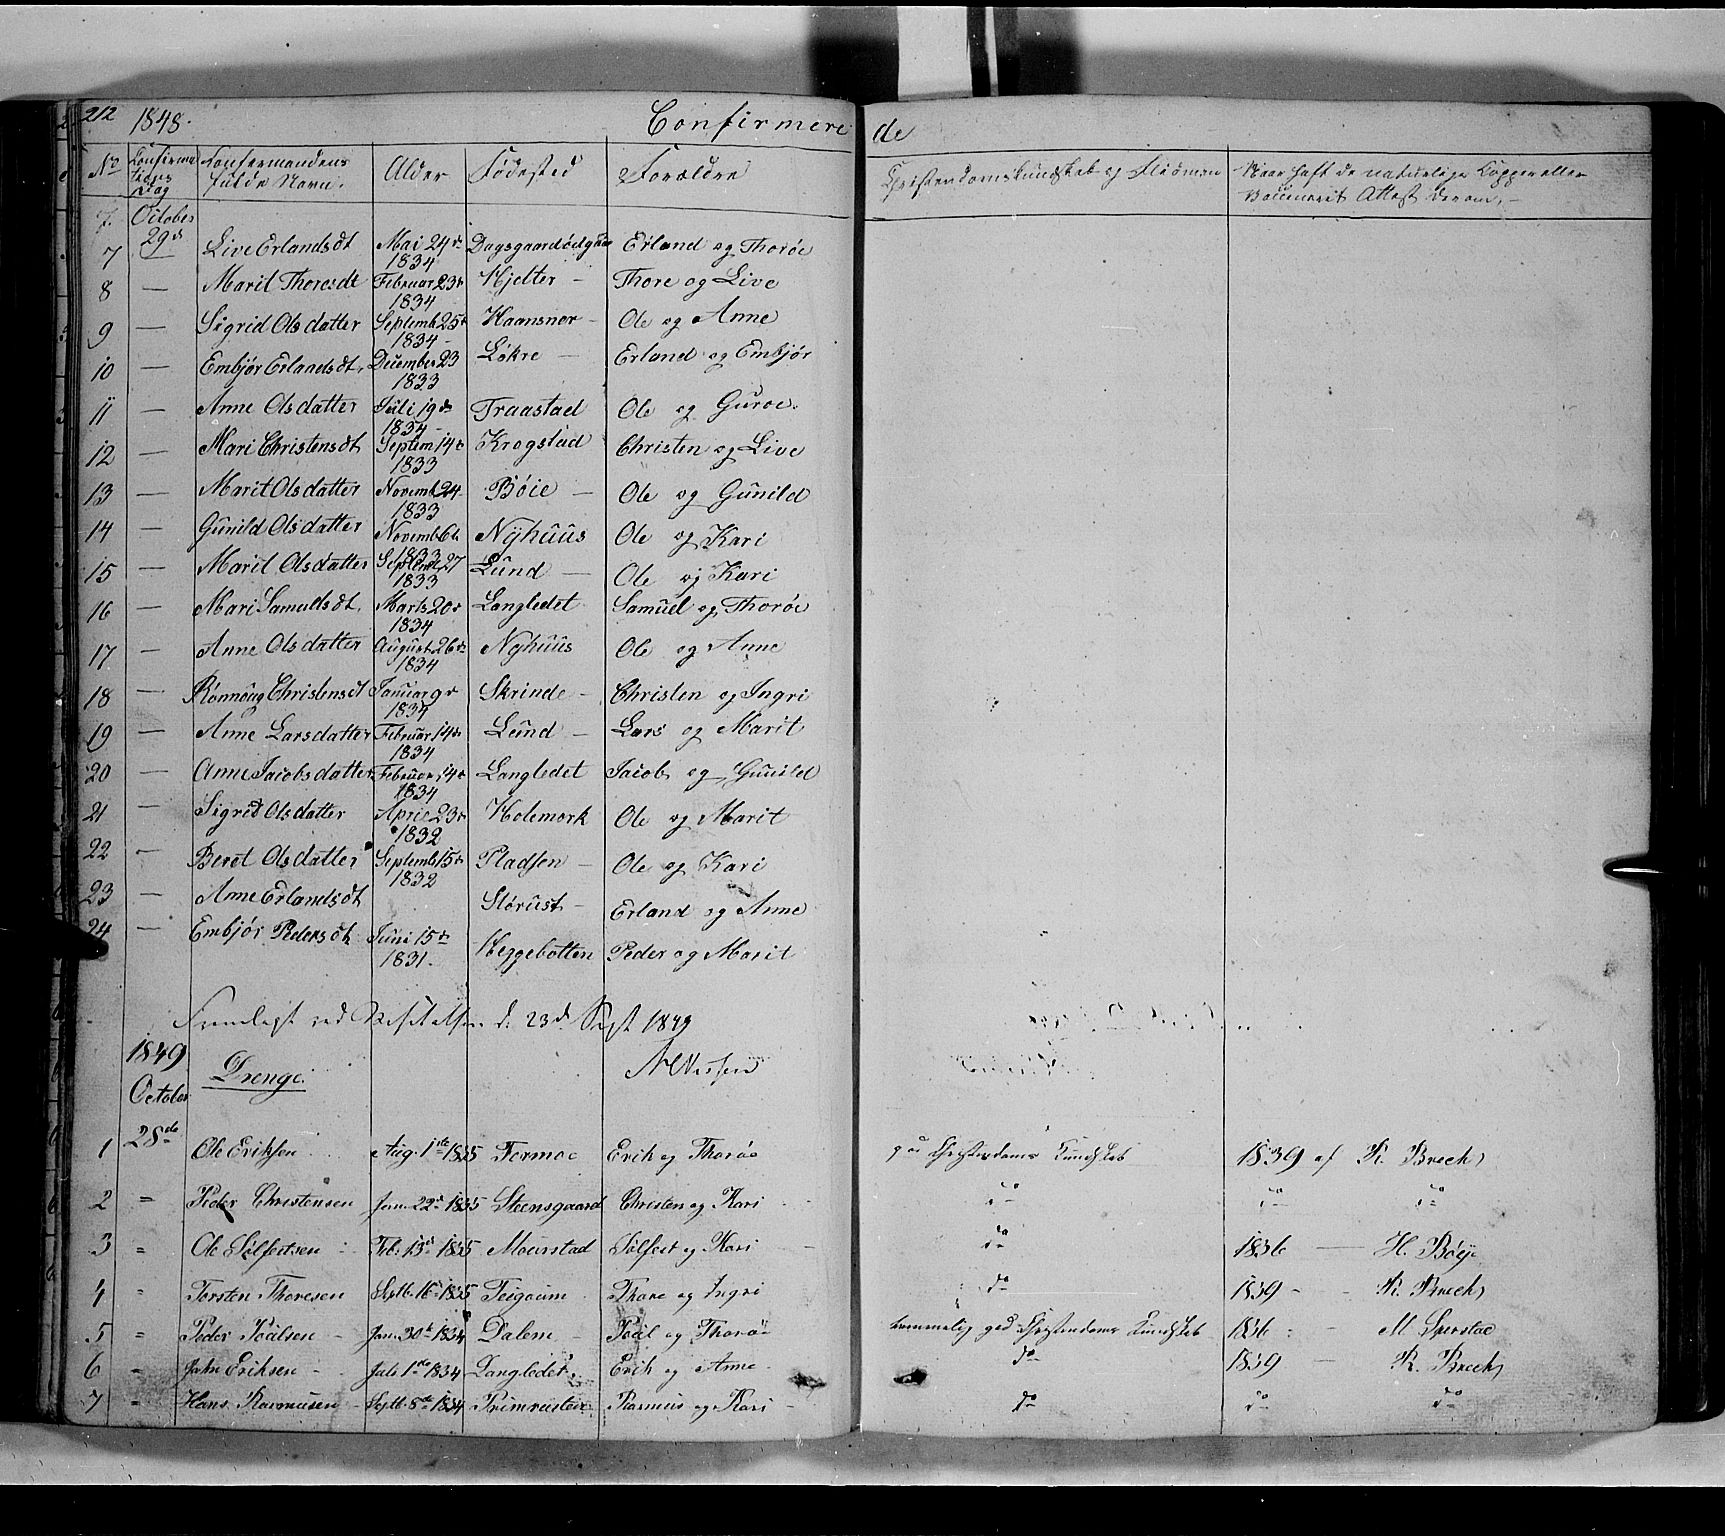 212 1848. Confirmere de
No Confirmations Dag Confirmandens fulde Navn. Alder Fødested Forældre Christendomskundskab og Flid Naar haft de naturlige Kopper eller Vaccineret Attest derom.
7. October
7 29d Live Erlandsdt Mai 24d 1834 Dagsgaardødgaar Erland og Thorøe
8 — Marit Thoresdt Februar 23d 1834 Hjelter — Thore og Live
9 — Sigrid Olsdatter Septemb 25d 1834 - Haansnar — Ole og Anne
10 — Embjør Erlandsdt. December 23 1833 Løkre — Erland og Embjør
11 — Anne Olsdatter Juli 19de 1834 - Traastad Ole og Guroe.
12 — Mari Christensdt Septem 14d 1833 Krogstad Christen og Live
13 — Marit Olsdatter Novemb 24 1833 Bøie — Ole og Gunild
14 — Gunild Olsdatter Novemb 6te 1833 Nyhuus Ole og Kari
15 — Marit Olsdatter Septemb 27 1833 Lund — Ole og Kari
16 — Mari Samuelsdt. Marts 20d 1834 Langledet Samuel og Thorøe
17 — Anne Olsdatter August 26de 1834 Nyhuus Ole og Anne
18 — Rønnoug Christensdt Januar 9d 1834 Skrinde — Christen og Ingri
19 — Anne Larsdatter Februar 14de 1834 Lund — Lars og Marit
20 — Anne Jacobsdatter Februar 14d 1834 Langledet Jacob og Gunild
21 — Sigrid Olsdatter April 23d 1832 Holemork Ole og Marit
22 — Berit Olsdatter Septemb 15d 1832 Pladsen — Ole og Kari
23 — Anne Erlandsdt Storust — Erland og Anne
24 — Embjør Pedersdt Juni 15de 1831. Heggebotten Peder og Marit
Fremlagt ved Visitatsen d. 23d Sept 1849
1849 Drenge.
October
1 28de Ole Eriksen Aug. 1ste 1835 Formoe Erik og Thorøe god Christendoms Kundskab 1839 af R. Brech
2 " Peder Christensen Jan. 22d 1835 Steensgaard Christen og Kari do do do
3 " Ole Sølfestsen Feb: 13d 1835 Mourstad Sølfest og Kari do 1836 — H. Bøye
4 " Torsten Thoresen Septb. 16d 1835 Teigaum Thore og Ingri do 1839 - R. Brech
5 " Peder Poulsen Jan. 30te 1834 Dalem — Poul og Thorøe temmelig god Christendoms Kundskab 1836 M
6 " John Eriksen Juli 1ste 1834 Langledet Erik og Anne do 1839 — R. Brech
7 " Hans Rasmusen Septb. 8de 1834 Rasmus og Kari do do do